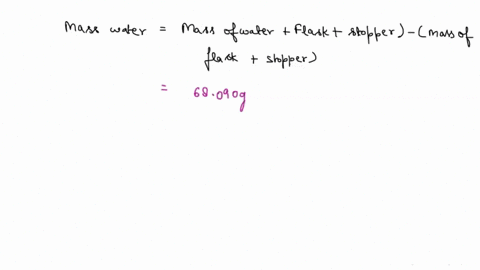 Mass water = Mass of water + Flask + stopper) - (mass of
flask + stopper)
= 68.090g